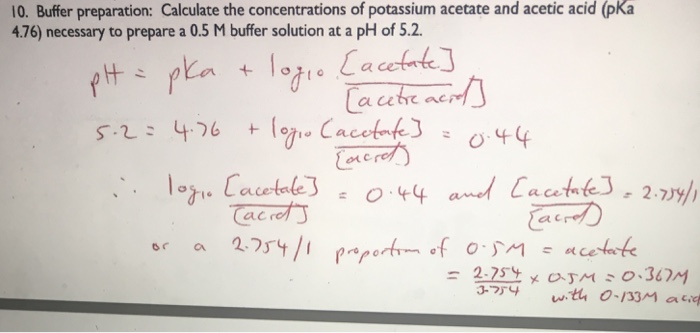 10. Buffer preparation: Calculate the concentrations of potassium acetate and acetic acid (pKa
4.76) necessary to prepare a 0.5 M buffer solution at a pH of 5.2.
pH = pKa + log10 [acetate]
[acetic acid]
5.2 = 4.76 + log10 [acetate] = 0.44
[acid]
∴ log10 [acetate] = 0.44 and [acetate] = 2.754/1
[acid] [acid]
or a 2.754/1 proportion of 0.5M = acetate
= 2.754 x 0.5M = 0.367M
3.754 with 0.133M acid